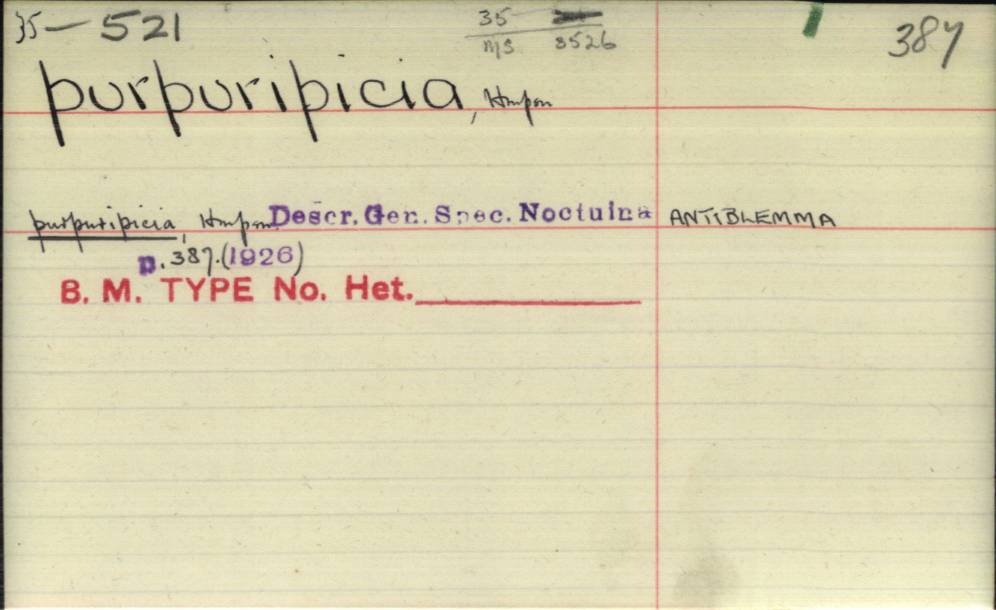 35-521
35 387
m/s 8526
purpuripicia, Hmpsn
purpuripicia, Hmpsn Descr. Gen. Spec. Noctuina ANTIBLEMMA
p. 387. (1926)
B. M. TYPE No. Het.